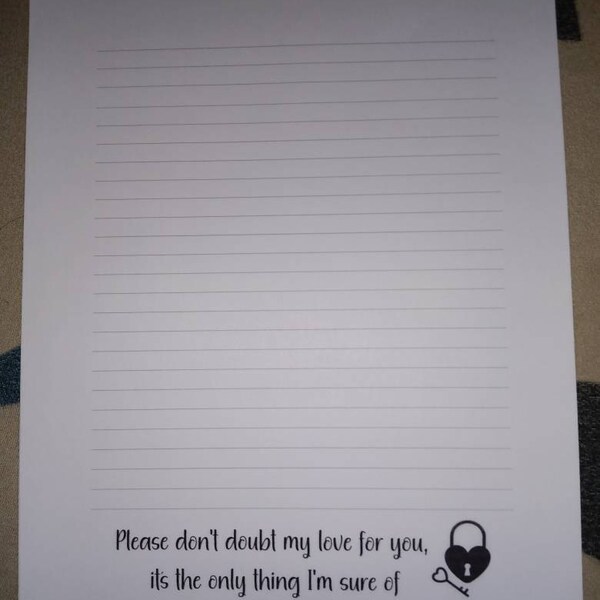 Please don't doubt my love for you,
it's the only thing I'm sure of